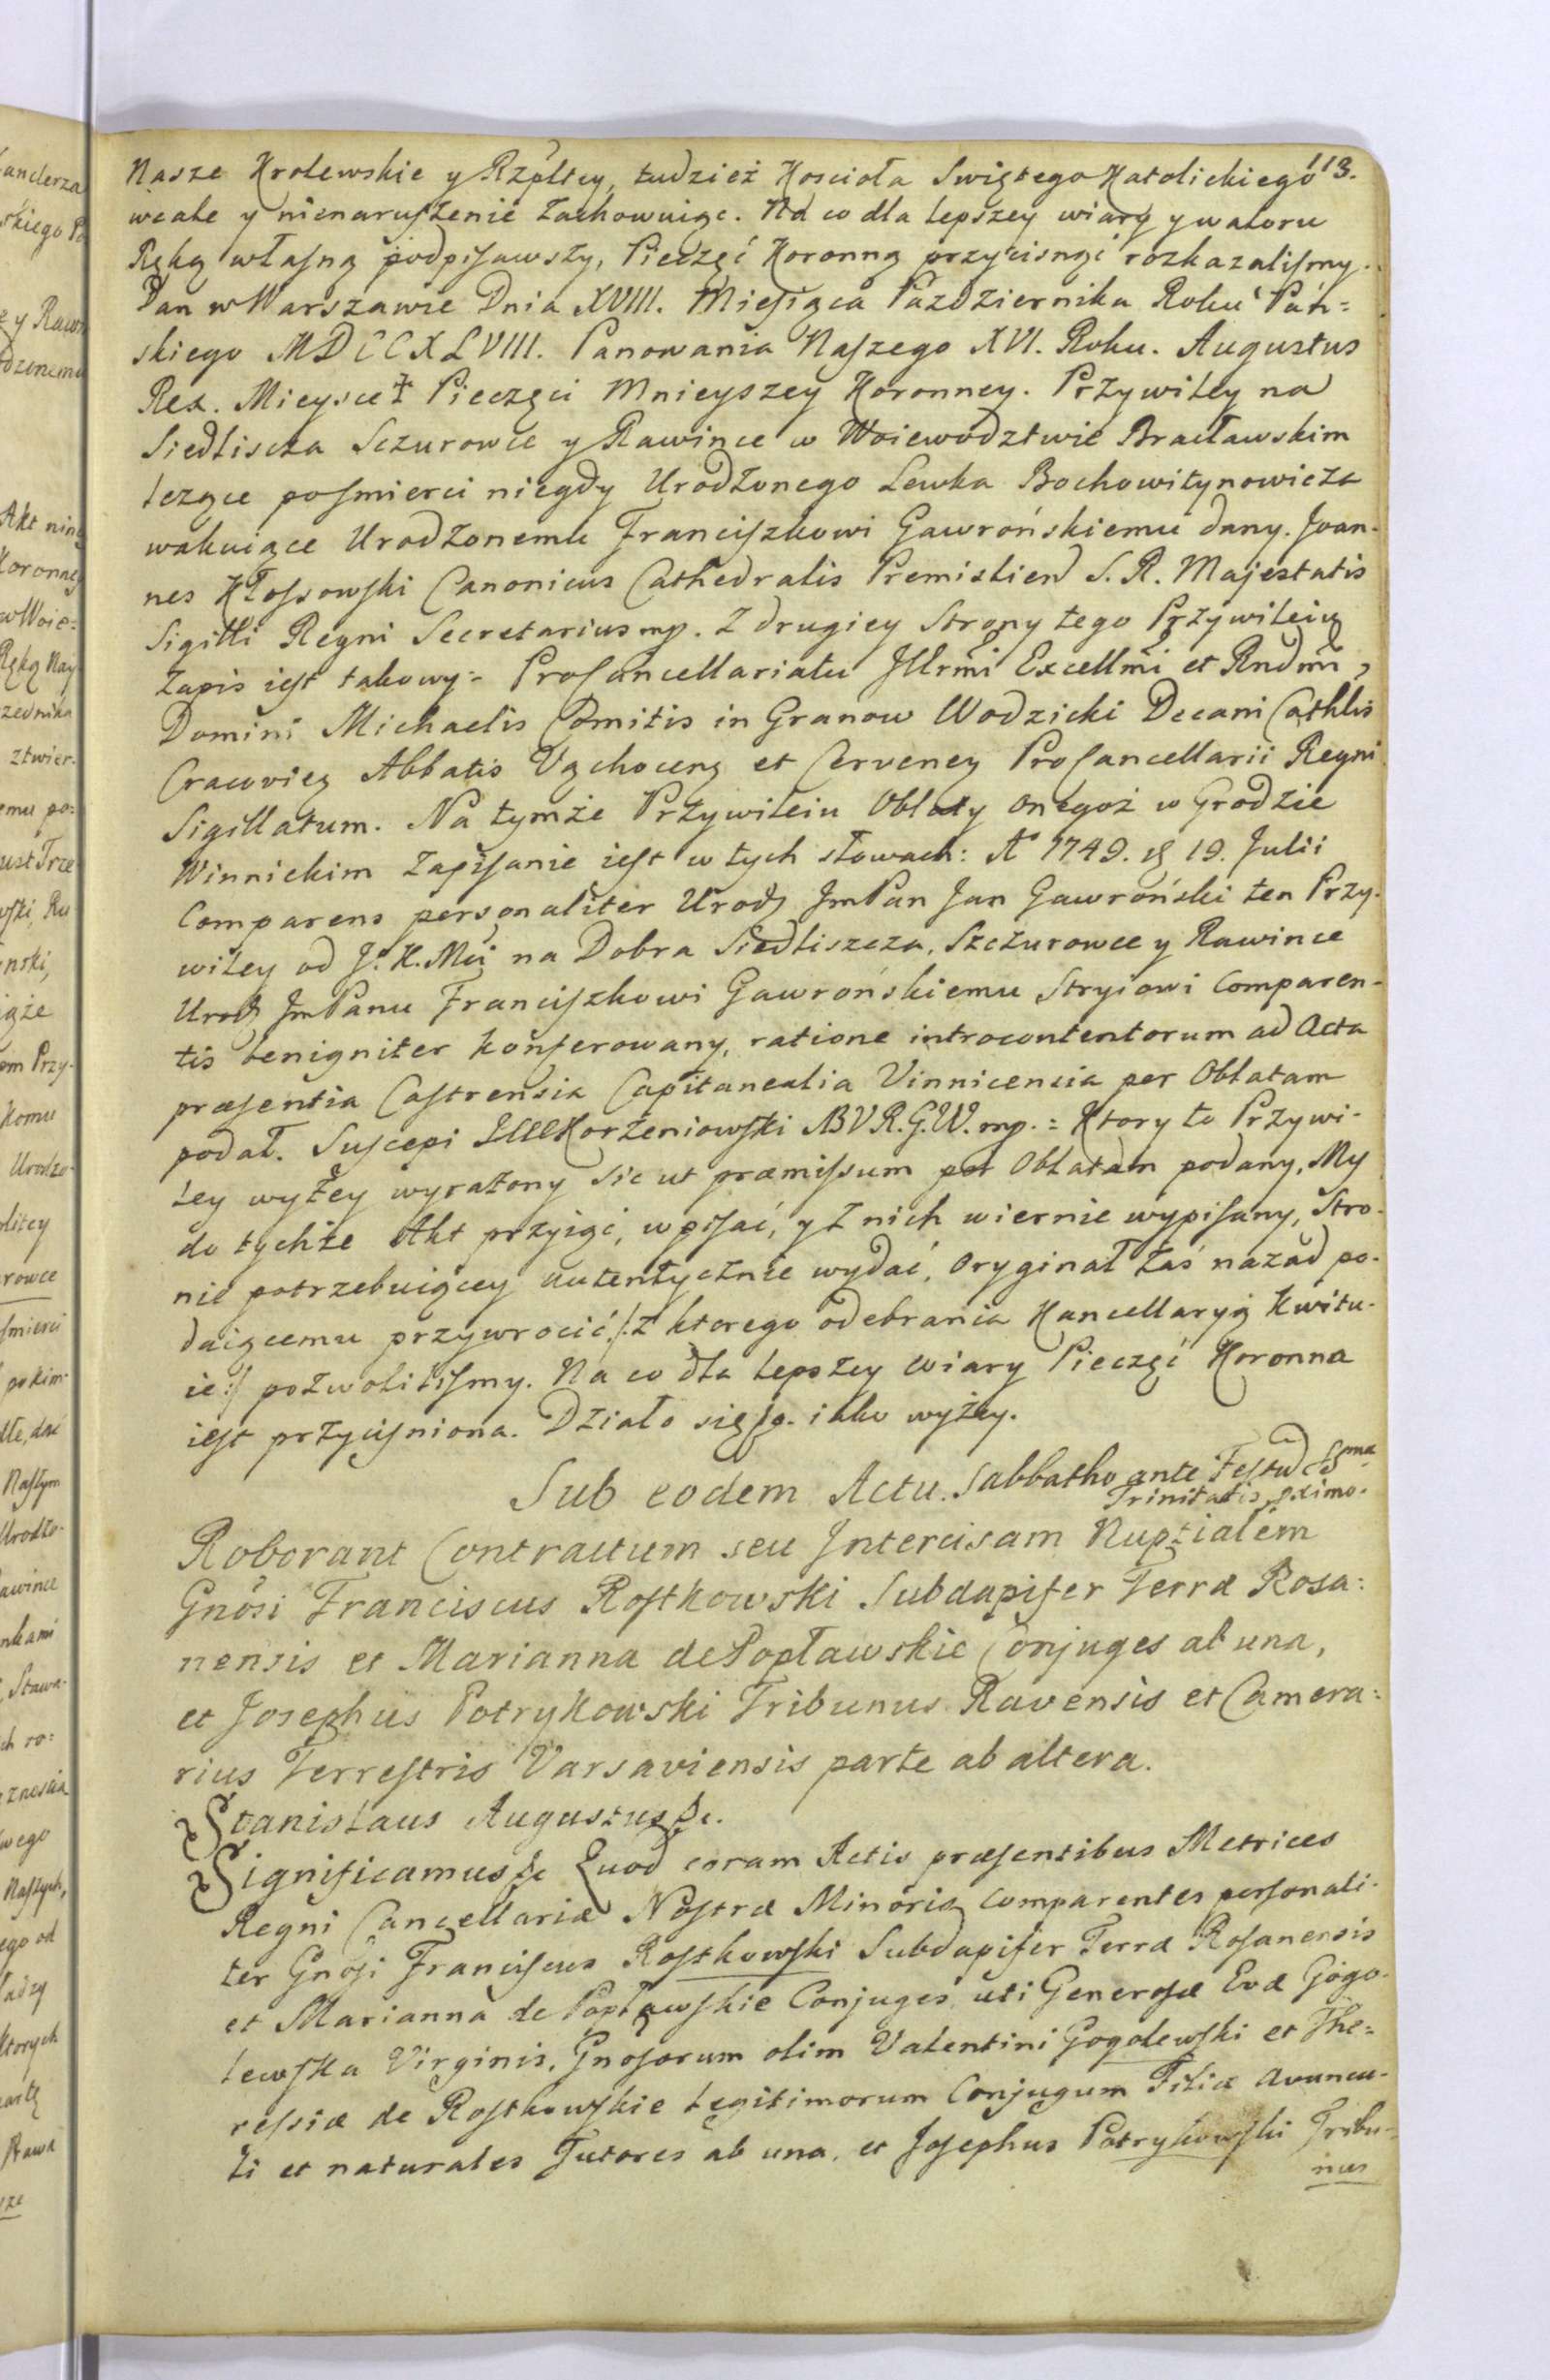 113.
Nasze Krolewskie y Rzpltey, tudzież Koscioła Swiętego Katolickiego
wcale y nienaruszenie zachowuiąc. Na co dla lepszey wiary y waloru
Ręką własną podpisawszy, Pieczęć Koronną przycisnąć rozkazalismy.
Dan w Warszawie Dnia XVIII. Miesiąca Pazdziernika Roku Pań=
skiego MDCCXLVIII. Panowania Naszego XVI. Roku. Augustus
Rex. Mieysce Pieczęci Mnieyszey Koronney. Przywiley na
Siedliscza Sczurowce y Rawince w Woiewodztwie Bracławskim
lezące posmierci niegdy Urodzonego Lewka Bochowitynowicza
wakuiące Urodzonemu Franciszkowi Gawrońskiemu dany. Joan-
nes Kłossowski Canonicus Cathedralis Premislien S. R. Majestatis
Sigilli Regni Secretarius mp. Z drugiey Strony tego Przywileiu
Zapis iest takowy: ProCancellariatu Jllrmi Excellmi et Rndmi,
Domini Michaelis Comitis in Granow Wodzicki Decani Cathlis
Cracovien Abbatis Vąchocens et Cervenen ProCancellarii Regni
Sigillatum. Na tymże Przywileiu Oblaty onegoż w Grodzie
Winnickim Zapisanie iest w tych słowach: A 1749. d 19. Julii
Comparens personaliter Urodz JmPan Jan Gawroński ten Przy-
wiley od J. K. Mci na Dobra Siedliszcza, Szczurowce y Rawince
Urodz JmPanu Franciszkowi Gawrońskiemu Stryiowi Comparen-
tis benigniter konferowany, ratione introcontentorum ad Acta
præsentia Castrensia Capitanealia Vinnicencia per Oblatam
podał. Suscepi Korzeniowski NBVR.G.W. mp. = Ktory to Przywi-
ley wyżey wyrażony sic ut præmissum per Oblatam podany, My
do tychże Akt przyiąć, wpisać, y z nich wiernie wypisany, Stro-
nie potrzebuiącey autentycznie wydać, Oryginał zaś nazad po-
daiącemu przywrocić /: z ktorego odebrania Kancellaryą kwitu-
ie :/ pozwolilismy. Na co dla lepszey wiary Pieczęć Koronna
iest przycisniona. Działo się iako wyżey.
Sub eodem Actu. Sabbatho ante Festu SSma
Trinitatis, pximo.
Roborant Contractum seu Intercisam Nuptialem
Gnosi Franciscus Rostkowski Subdapifer Terræ Rosa=
nensis et Marianna de Popławskie Conjuges ab una,
et Josephus Potrykowski Tribunus Ravensis et Camera=
rius Terrestris Varsaviensis parte ab altera.
Stanislaus Augustus &c.
Significamus &c Quod coram Actis præsentibus Metrices
Regni Cancellariæ Nostræ Minoris comparentes personali-
ter Gnosi Franciscus Rostkowski Subdapifer Terræ Rosanensis
et Marianna de Popławskie Conjuges, uti Generosæ Evæ Gogo-
lewska Virginis, Gnosorum olim Valentini Gogolewski et The=
ressiæ de Rostkowskie Legitimorum Conjugum Filiæ avuncu-
li et naturales Tutores ab una, et Josephus Potrykowski Tribu-
nus